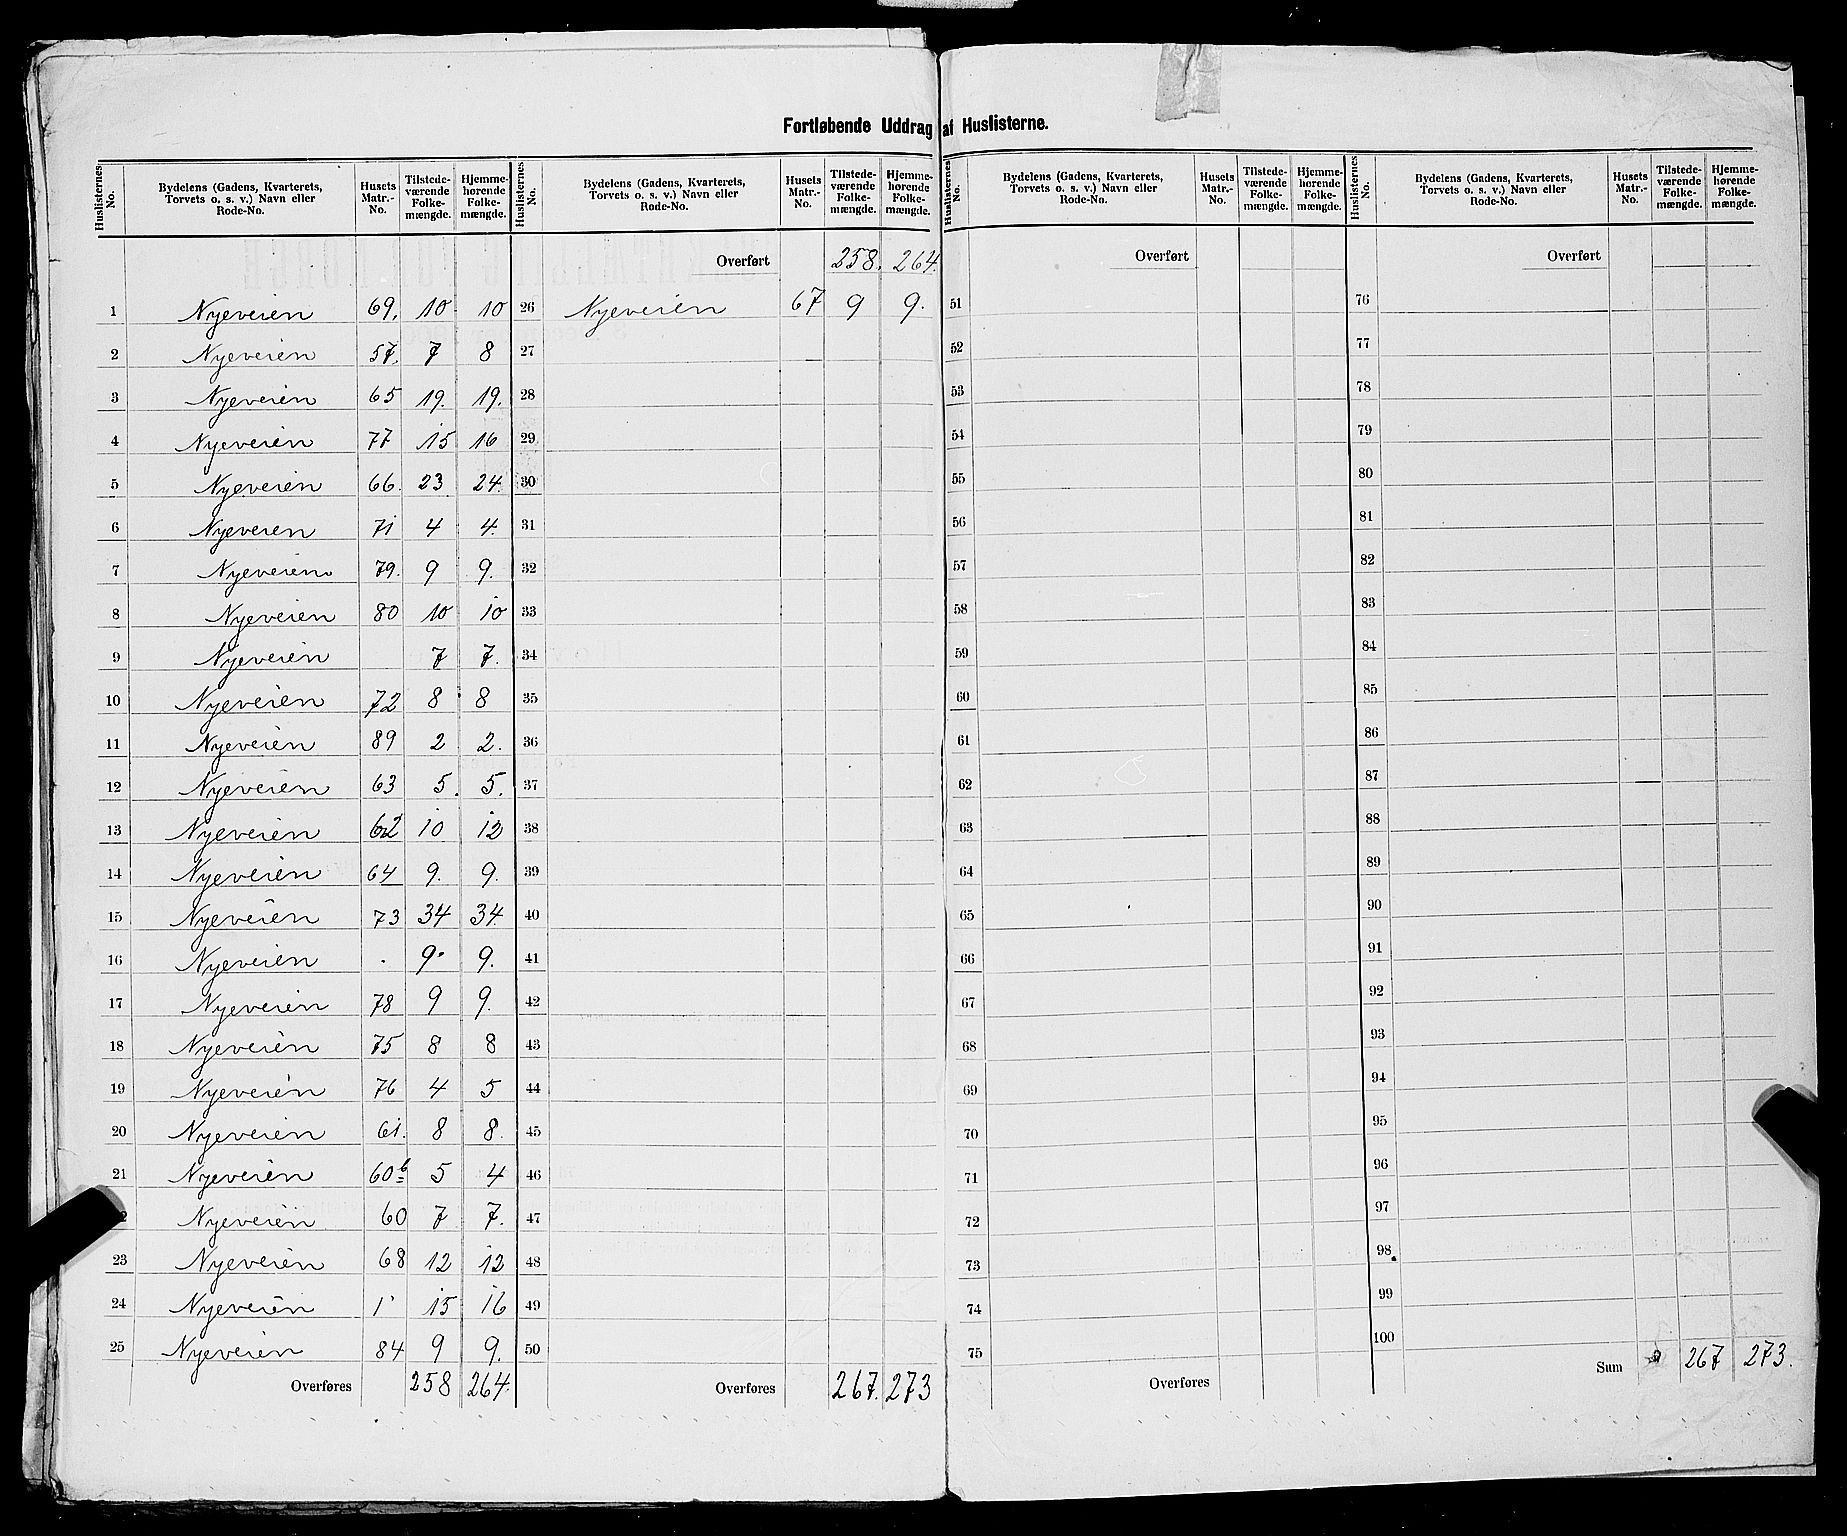 Fortløbende Uddrag af Huslisterne.
Huslisternes No. | Bydelens (Gadens, Kvarterets, Torvets o. s. v.) Navn eller Rode-No. | Husets Matr.-No. | Tilstede-værende Folke-mængde. | Hjemme-hørende Folke-mængde.
1 Nyeveien 69. 10 10
2 Nyeveien 57. 7 8
3 Nyeveien 65 19. 19.
4 Nyeveien 77 15 16
5 Nyeveien 66. 23 24.
6 Nyeveien 71 4 4.
7 Nyeveien 79. 9 9.
8 Nyeveien 80 10 10
9 Nyeveien 7 7.
10 Nyeveien 72 8 8
11 Nyeveien 89 2 2.
12 Nyeveien 63 5. 5.
13 Nyeveien 62 10 12
14 Nyeveien 64 9. 9.
15 Nyeveien 73 34 34.
16 Nyeveien . 9. 9.
17 Nyeveien 78 9 9.
18 Nyeveien 75 8 8
19 Nyeveien 76 4 5
20 Nyeveien 61. 8 8.
21 Nyeveien 60b 5 4
2 Nyeveien 60 7 7.
23 Nyeveien 68 12 12
24 Nyeveien 1 15 16
25 Nyeveien 84 9 9.
Overføres 258 264.
Huslisternes No. | Bydelens (Gadens, Kvarterets, Torvets o. s. v.) Navn eller Rode-No. | Husets Matr.-No. | Tilstede-værende Folke-mængde. | Hjemme-hørende Folke-mængde.
Overført 258. 264.
26 Nyeveien 67 9 9.
27
28
29
30
31
32
33
34
35
36
37
38
39
40
41
42
43
44
45
46
47
48
49
50
Overføres 267. 273
Huslisternes No. | Bydelens (Gadens, Kvarterets, Torvets o. s. v.) Navn eller Rode-No. | Husets Matr.-No. | Tilstede-værende Folke-mængde. | Hjemme-hørende Folke-mængde.
Overført
51
52
53
54
55
56
57
58
59
60
61
62
63
64
65
66
67
68
69
70
71
72
73
74
75
Overføres
Huslisternes No. | Bydelens (Gadens, Kvarterets, Torvets o. s. v.) Navn eller Rode-No. | Husets Matr.-No. | Tilstede-værende Folke-mængde. | Hjemme-hørende Folke-mængde.
Overført
76
77
78
79
80
81
82
83
84
85
86
87
88
89
90
91
92
93
94
95
96
97
98
99
100
Sum 267 273.